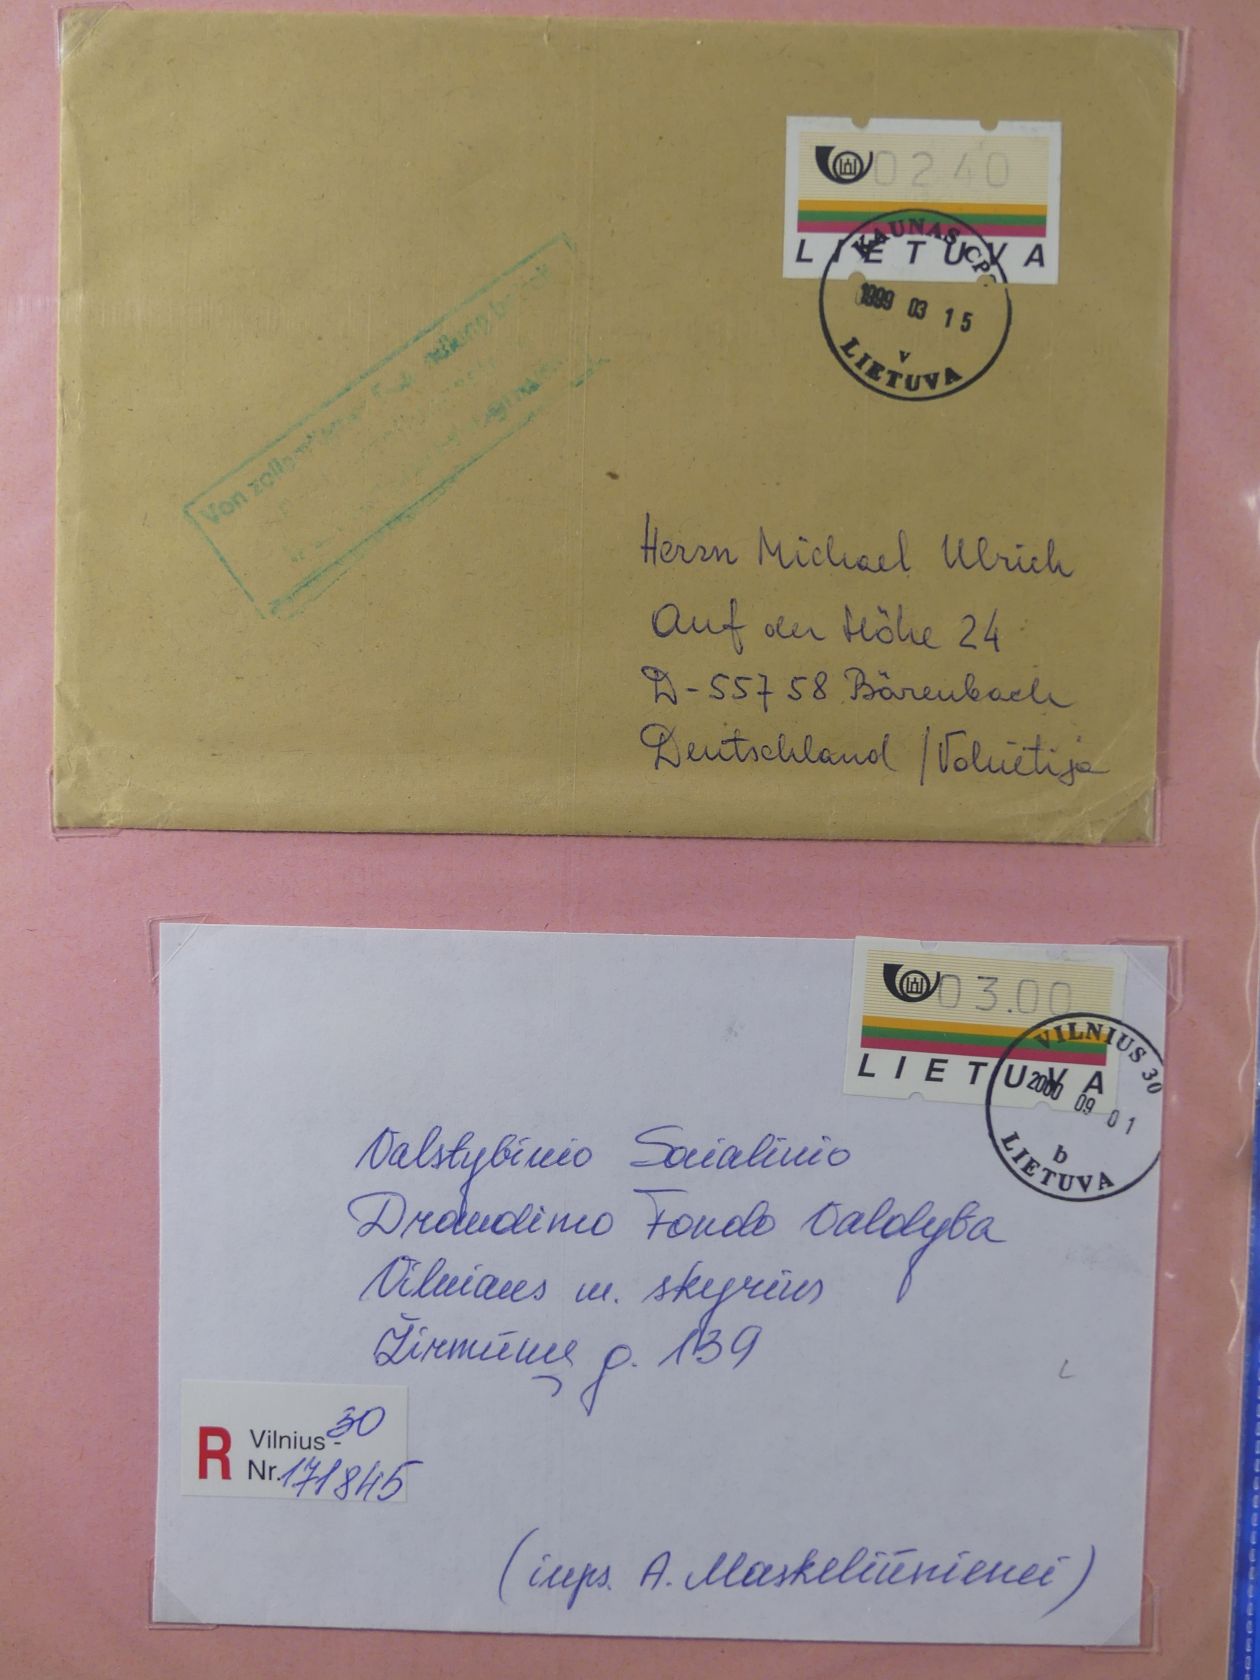 0240
LIETUVA
KAUNAS CP
1999 03 15
v
LIETUVA
Von
Herrn Michael Ulrich
Auf der Höhe 24
D-55758 Bärenbach
Deutschland / Vokietija
03.00
LIETUVA
VILNIUS 30
2000 09 01
b
LIETUVA
Valstybinio Socialinio
Draudimo Fondo Valdyba
Vilniaus m. skyrius
Žirmūnų g. 139
R Vilnius - 30
Nr. 171845
(insp. A. Maskeliūnienei)